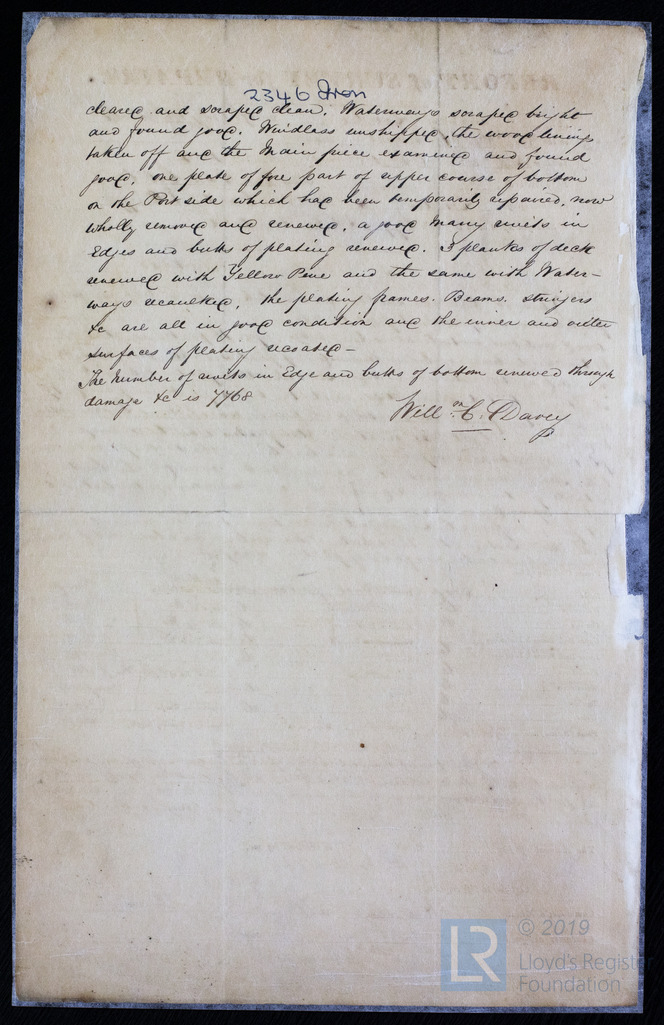 2346 Iron
cleared and scraped clean. Waterways scraped bright
and found good. Windlass unshipped, the wood lining
taken off and the Main piece examined and found
good. one plate of fore part of upper course of bottom
on the Port side which had been temporarily repaired, now
wholly removed and renewed, a good many rivets in
Edges and butts of plating renewed. 3 planks of deck
renewed with Yellow Pine and the same with Water-
ways recaulked. the plating frames. Beams. stringers
&c are all in good condition and the inner and outer
surfaces of plating recoated -
The Number of rivets in Edge and butts of bottom renewed through
damage &c is 7768
Willm. C. Davey
LR
© 2019
Lloyd's Register
Foundation